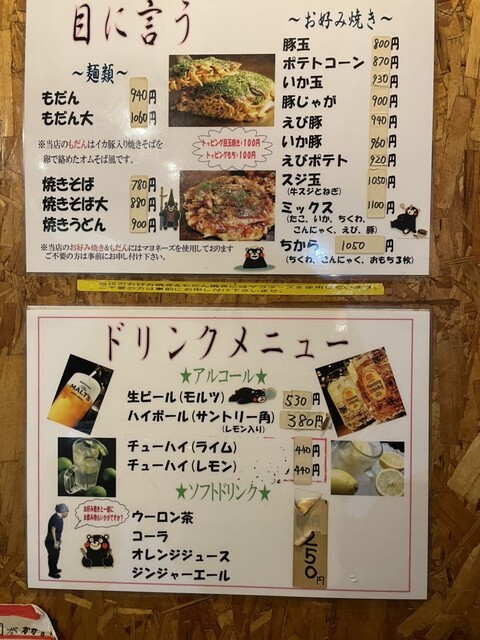 目に言う
～麺類～
もだん 940円
もだん大 1060円
※当店のもだんはイカ豚入り焼きそばを
卵で絡めたオムそば風です。
焼きそば 780円
焼きそば大 880円
焼きうどん 900円
※当店のお好み焼き&もだんにはマヨネーズを使用しております
ご不要の方は事前にお申し付け下さい。
トッピング目玉焼き・100円
トッピングもち・100円
～お好み焼き～
豚玉 800円
ポテトコーン 870円
いか玉 930円
豚じゃが 900円
えび豚 940円
いか豚 960円
えびポテト 920円
スジ玉 1050円
(牛スジとねぎ)
ミックス 1100円
(たこ、いか、ちくわ、
こんにゃく、えび、豚)
ちから 1050円
(ちくわ、こんにゃく、おもち3枚)
当店のお好み焼き&もだんにはマヨネーズを使用しています
ご不要の方は事前にお申し付け下さいませ。
ドリンクメニュー
★アルコール★
生ビール(モルツ) 530円
ハイボール(サントリー角) 380円
(レモン入り)
チューハイ(ライム) 440円
チューハイ(レモン) 440円
★ソフトドリンク★
お好み焼きと一緒に
お飲み物もいかがですか?
ウーロン茶
コーラ
オレンジジュース
ジンジャーエール
250円
MALTS